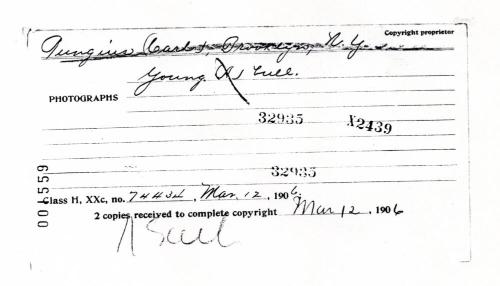 Copyright proprietor
Brooklyn, N. Y.
Young & Lull.
PHOTOGRAPHS
32935 X2439
32935
001559
Class H, XXc, no. 74434, Mar. 12, 1906.
2 copies received to complete copyright Mar 12, 1906